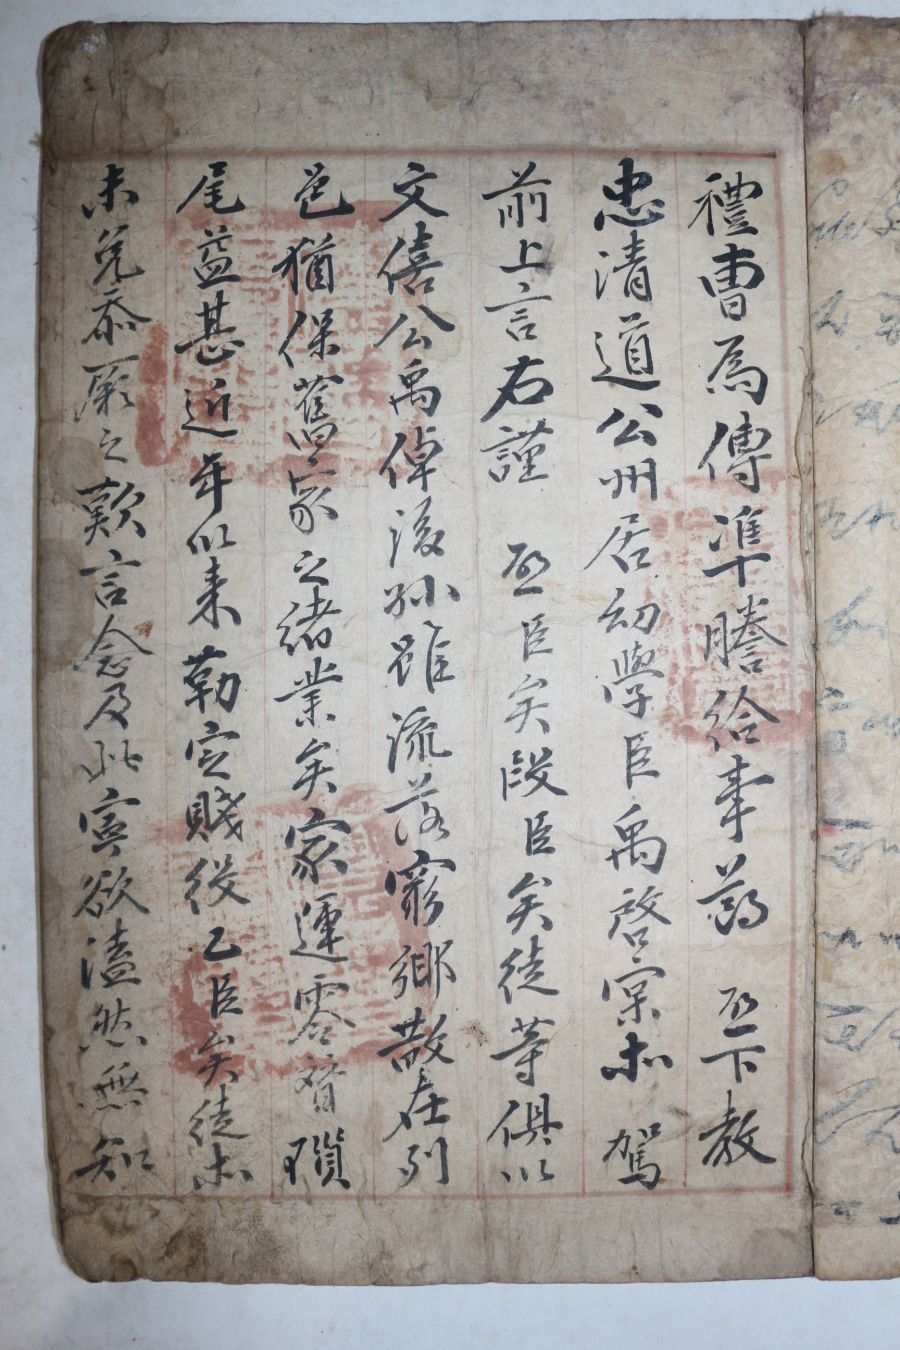 禮曹爲傳準謄給事節 啓下教
忠淸道公州居幼學臣禹啓宲亦 駕
前上言右謹 啓臣矣段臣矣徒等俱以
文僖公禹倬後孫雖流落窮鄕散在列
邑猶保舊家之緖業矣家運零替瑣
尾益甚近年以來勒定賤役乙臣矣徒亦
未免忝厥之歎言念及此寧欲溘然無知